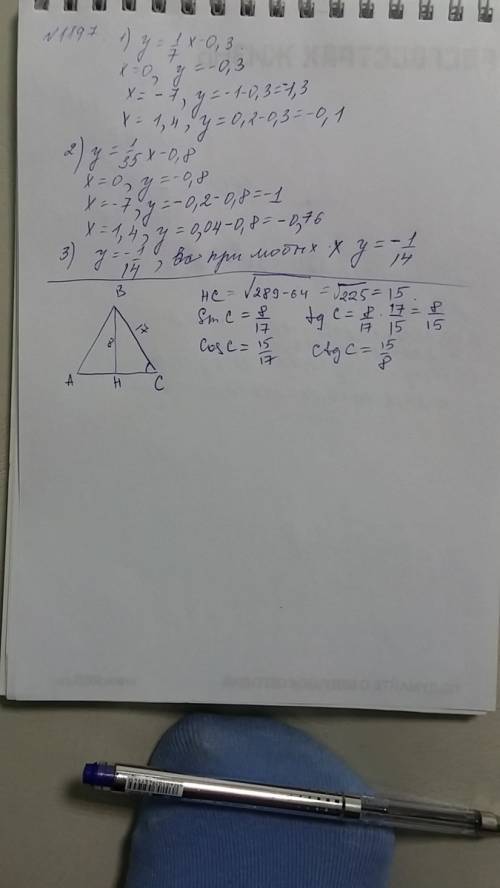 №1197 1) y = 1/7 x - 0,3
x=0, y = -0,3
x = -7, y = -1-0,3=-1,3
x = 1,4, y = 0,2-0,3=-0,1
2) y = 1/35 x - 0,8
x=0, y=-0,8
x=-7, y=-0,2-0,8=-1
x=1,4, y=0,04-0,8=-0,76
3) y=-1/14, при любых x y = -1/14
B
8
17
A H C
HC = √289-64 = √225 = 15.
Sin C = 8/17 tg C = 8/17 · 17/15 = 8/15
Cos C = 15/17 Ctg C = 15/8